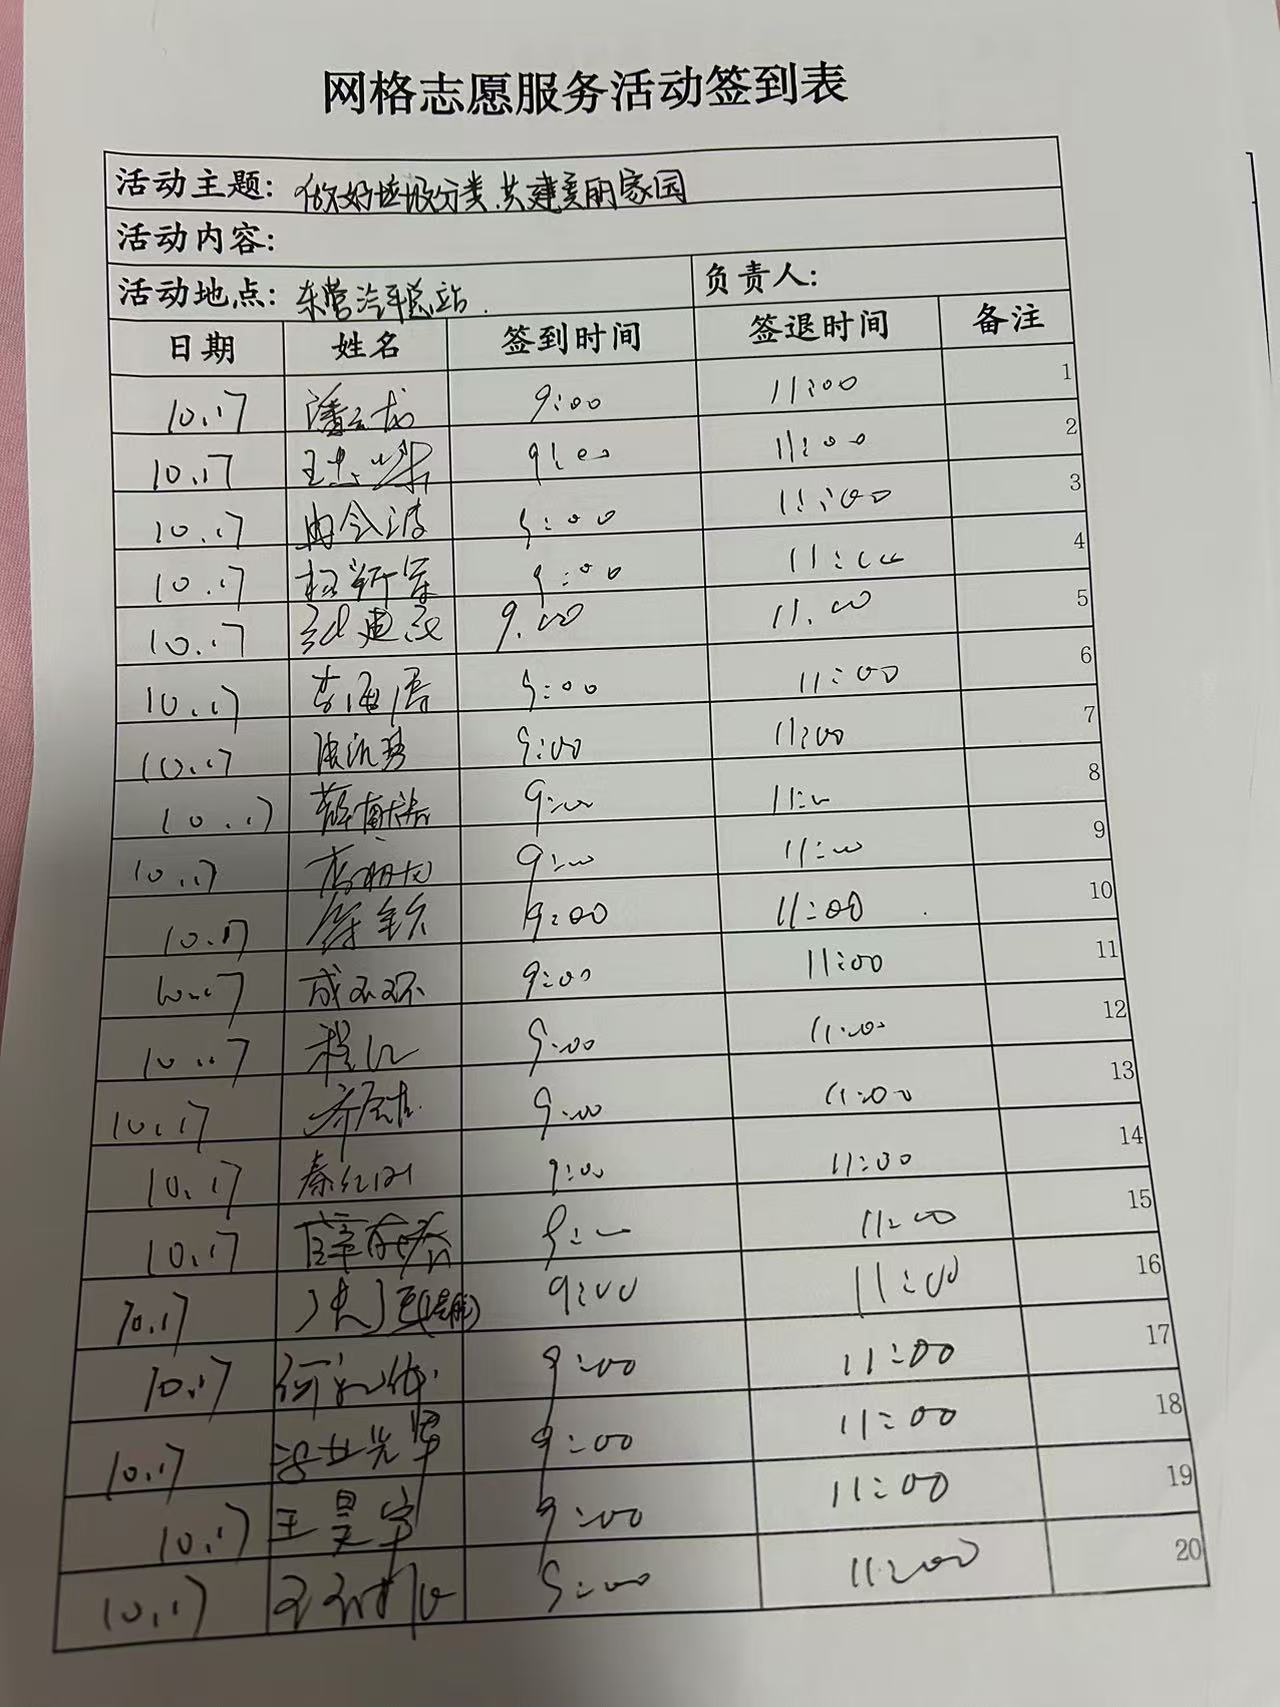 网格志愿服务活动签到表
活动主题: 做好垃圾分类.共建美丽家园
活动内容:
活动地点: 东营汽车总站.
负责人:
日期 姓名 签到时间 签退时间 备注
10.17 潘云龙 9:00 11:00 1
10.17 王 9:00 11:00 2
10.17 由令波 9:00 11:00 3
10.17 杨新军 9:00 11:00 4
10.17 9.00 11.00 5
10.17 李海 9:00 11:00 6
10.17 9:00 11:00 7
10.17 薛 9:00 11:00 8
10.17 9:00 11:00 9
10.17 9:00 11:00 10
10.17 成环环 9:00 11:00 11
10.17 程红 9:00 11:00 12
10.17 9:00 11:00 13
10.17 秦红 9:00 11:00 14
10.17 薛 9:00 11:00 15
10.17 9:00 11:00 16
10.17 何 9:00 11:00 17
10.17 光军 9:00 11:00 18
10.17 王昊宇 9:00 11:00 19
10.17 9:00 11:00 20